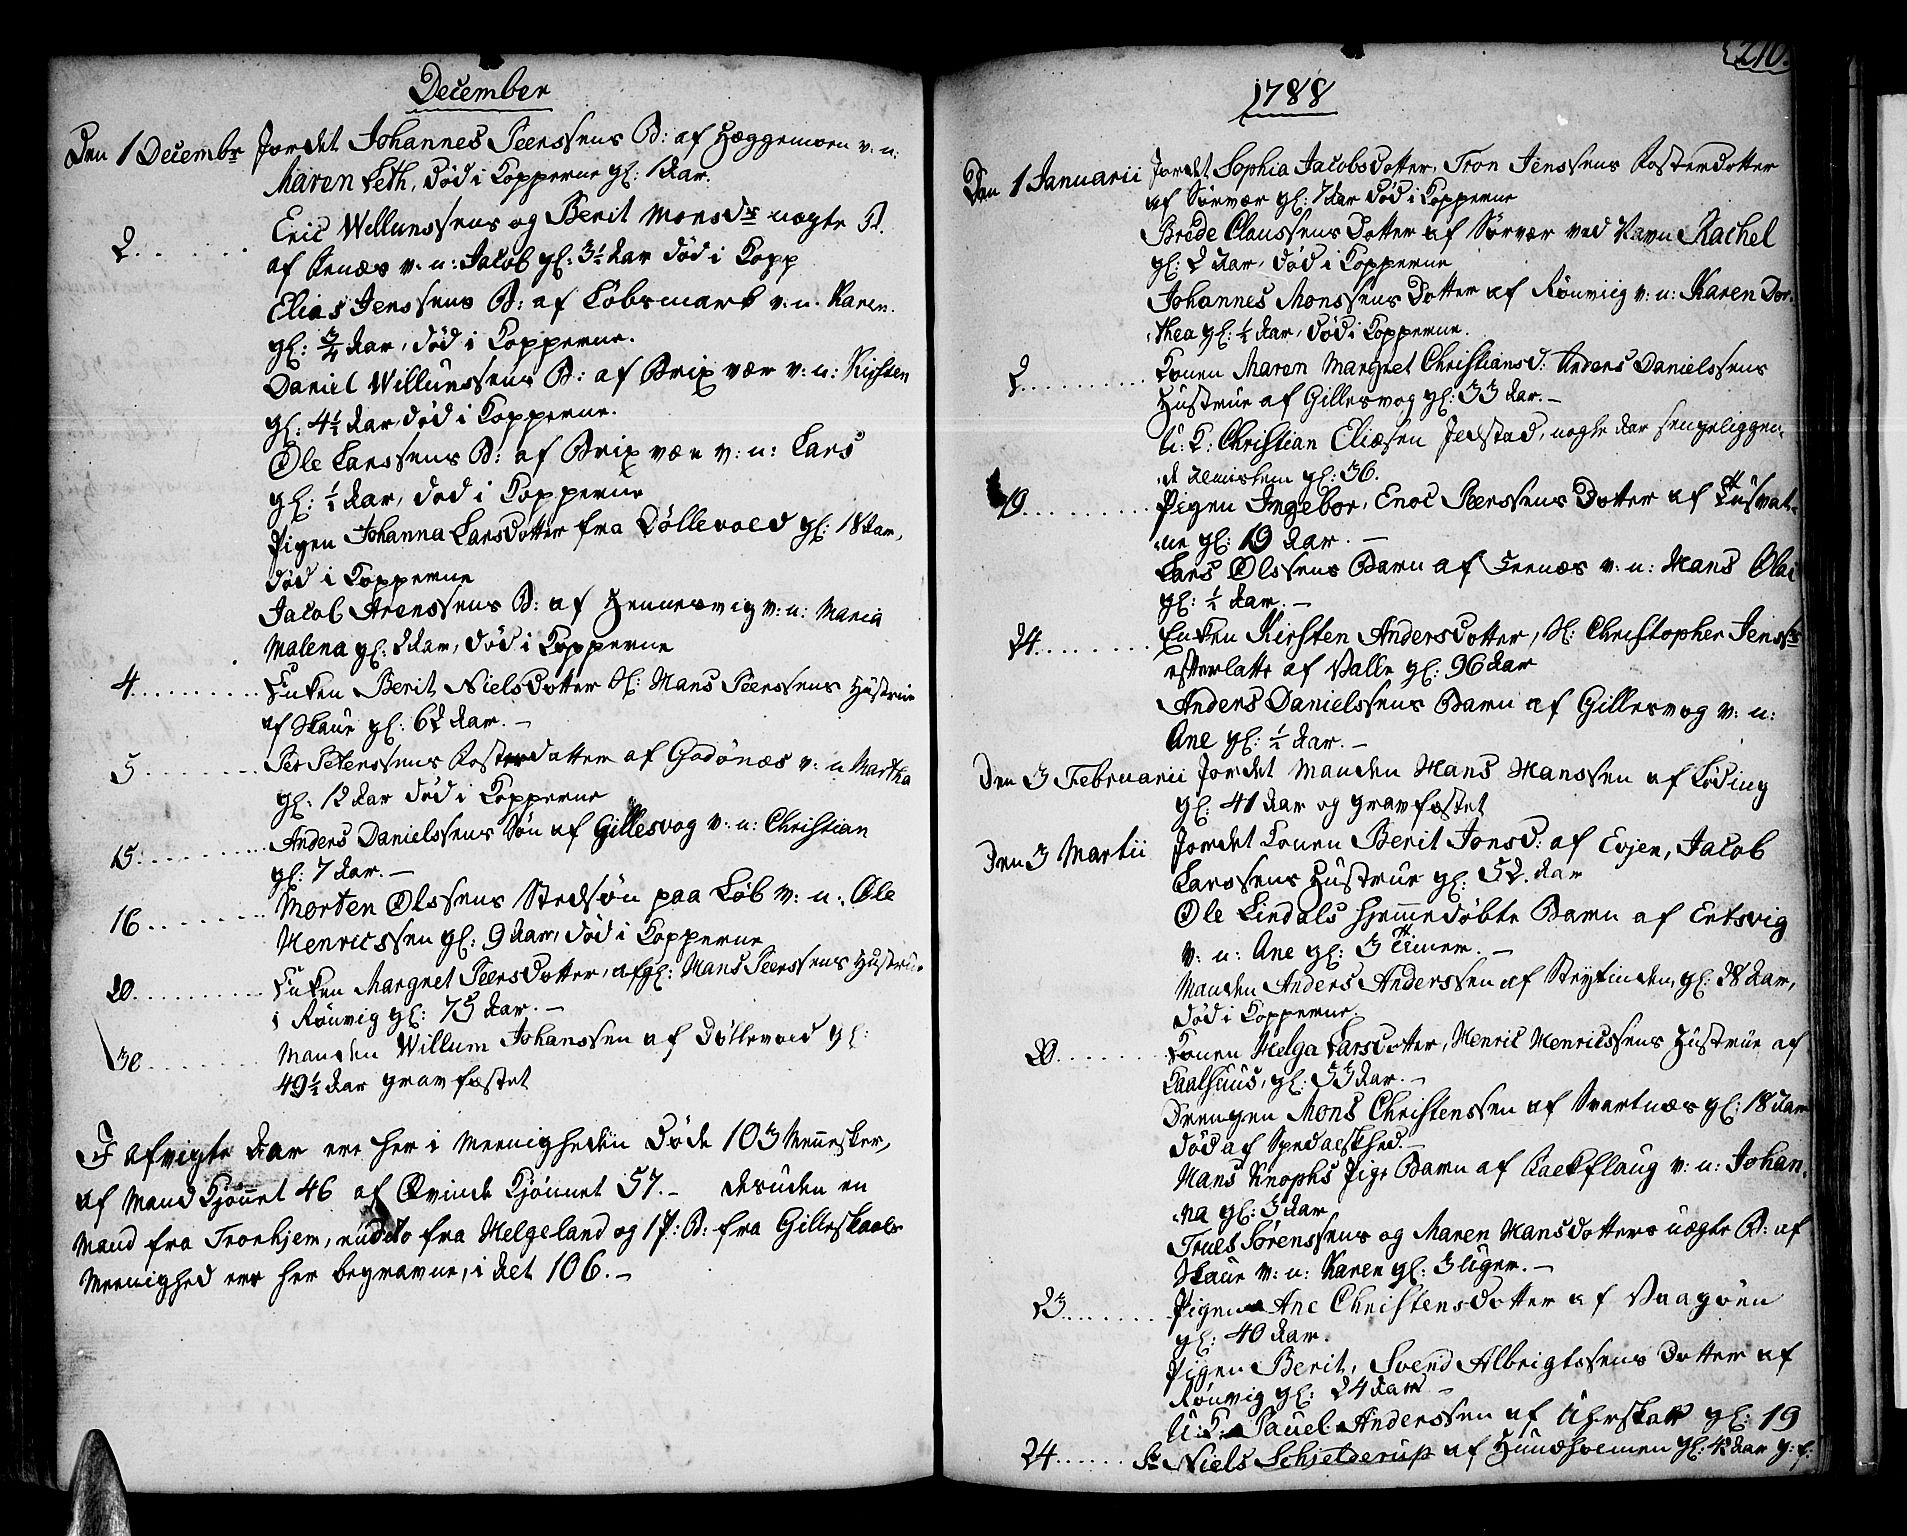 December
Den 1 Decembr Jordet Johannes Peerssens B: af Hæggemoen v: n:
Maren Seth, død i Kopperne gl: 1 Aar.
2 . . . . . . Eric Willumssens og Berit Monsdr uægte B.
af Kenæs v: n: Jacob gl: 3½ Aar død i Kopp
Elias Jenssens B: af Löbsmark v: n. Karen.
gl: ¾ Aar, död i Kopperne.
Daniel Willumssens B: af Brixvær v: n: Kirsten
gl: 4½ Aar, död i Kopperne.
Ole Larssens B: af Brixvær v: n: Lars
gl: ½ Aar, död i Kopperne
Pigen Johanna Larsdotter fra Döllevold gl: 18 Aar,
död i Kopperne
Jacob Arenssens B: af Hennesvig v: n: Maria
Malena gl: 2 Aar, död i Kopperne
4 . . . . . . . . Enken Berit Nielsdotter Sl: Hans Peerssens Hustrue
af Skaue gl: 62 Aar. –
5 . . . . . . . Per Peterssens Fosterdatter af Godönæs v: n Martha
gl: 12 Aar död i Kopperne
15 . . . . . . . . Anders Danielssens Søn af Gillesvog v: n: Christian
gl: 7 Aar. –
16 . . . . . . . Morten Olssens Stedsön paa Löb v: n: Ole
Henricssen gl: 9 Aar, död i Kopperne
20 . . . . . . . . . Enken Margret Peersdotter, afgl: Hans Peerssens Hustrue
i Rönvig gl: 75 Aar. –
30 . . . . . . . Manden Willum Johanssen af Döllevold gl:
49½ Aar gravfæstet
I afvigte Aar ere her i Meenigheden Döde 103 Mennesker,
af Mand Kjönnet 46 af Qvinde Kjönnet 57. – desuden en
Mand fra Tronhjem, en dito fra Helgeland og 1 P: B: fra Gilleskaals
Meenighed ere her begravne, i Alt 106. –
210.
1788
Den 1 Januarii Jordet Sophia Jacobsdotter, Tron Jenssens Fosterdotter
af Sörvær gl: 7 Aar död i Kopperne
Brede Claussens Dotter af Sörvær ved Navn Rachel
gl: 2 Aar, död i Kopperne
Johannes Monssens Dotter af Rönviig v: n: Karen Dor-
thea gl: ½ Aar, död i Kopperne.
2 . . . . . . . . . . . Konen Maren Margret Christiansd: Anders Danielssens
Hustrue af Gillesvog gl: 33 Aar. –
U: K: Christian Eliæsen Jedstad, nogle Aar sengeliggen-
de gl: 36.
19 . . . . . . . . . Pigen Ingebor, Enoc Peerssens Dotter af Tusvat-
ne gl: 19 Aar. –
Lars Olssens Barn af Leenæs v: n: Hans Olai
gl: ½ Aar. –
24 . . . . . . . . . Enken Kirsten Andersdotter, Sl: Christopher Jenss:
efterlatte af Valle gl: 96 Aar
Anders Danielssens Barn af Gillesvog v: n:
Ane gl: ½ Aar. –
Den 3 Februarii Jordet Manden Hans Hanssen af Löding
gl: 41 Aar og gravfæstet
Den 3 Martii Jordet Konen Berit Jonsd: af Evjen, Jacob
Larssens Hustrue gl: 52. Aar
Ole Lindals hjemmedöbte Barn af Ertsvig
v: n: Ane gl: 3 Timer. –
Manden Anders Anderssen af Strytinden, gl: 28 Aar,
död i Kopperne.
20 . . . . . . . . . Konen Helga Larsdotter, Henric Henricssens Hustrue af
Kaalhuus, gl: 53 Aar. –
Drengen Mons Christenssen af Svartnæs gl: 18 Aar
död af Spedalskhed. –
Hans Knophs Pige Barn af Backflaug v: n: Johan-
na gl: 3 Aar
Truls Sörenssens og Maren Hansdotters uægte B: af
Skaue v: n: Karen gl: 3 Uger. –
23 . . . . . . . . . Pigen Ane Christensdotter af Vaagöen
gl: 40 Aar.
Pigen Berit, Svend Albrigtssens Dotter af
Rönvig gl: 24 Aar –
U: K: Pauel Anderssen af Uhrskar gl: 19
24 . . . . . . Sr Niels Schjelderup af Hundholmen gl: 42 Aar g: f: